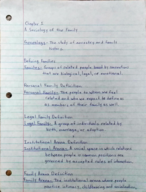 Chapter 1
A Sociology of the Family
Genealogy: The study of ancestry and family
history.
Defining Families
Families: Groups of related people, bound by connections
that are biological, legal, or emotional.
Personal Family Definition:
Personal Family: The people to whom we feel
related and who we expect to define us
as members of their family as well.
Legal Family Definition:
Legal Family: A group of individuals related by
birth, marriage, or adoption.
Institutional Arena Definition:
Institutional Arena: A social space in which relations
between people in common positions are
governed by accepted rules of interaction.
Family Arena Definition:
Family Arena: The institutional arena where people
practice intimacy, childbearing and socialization,